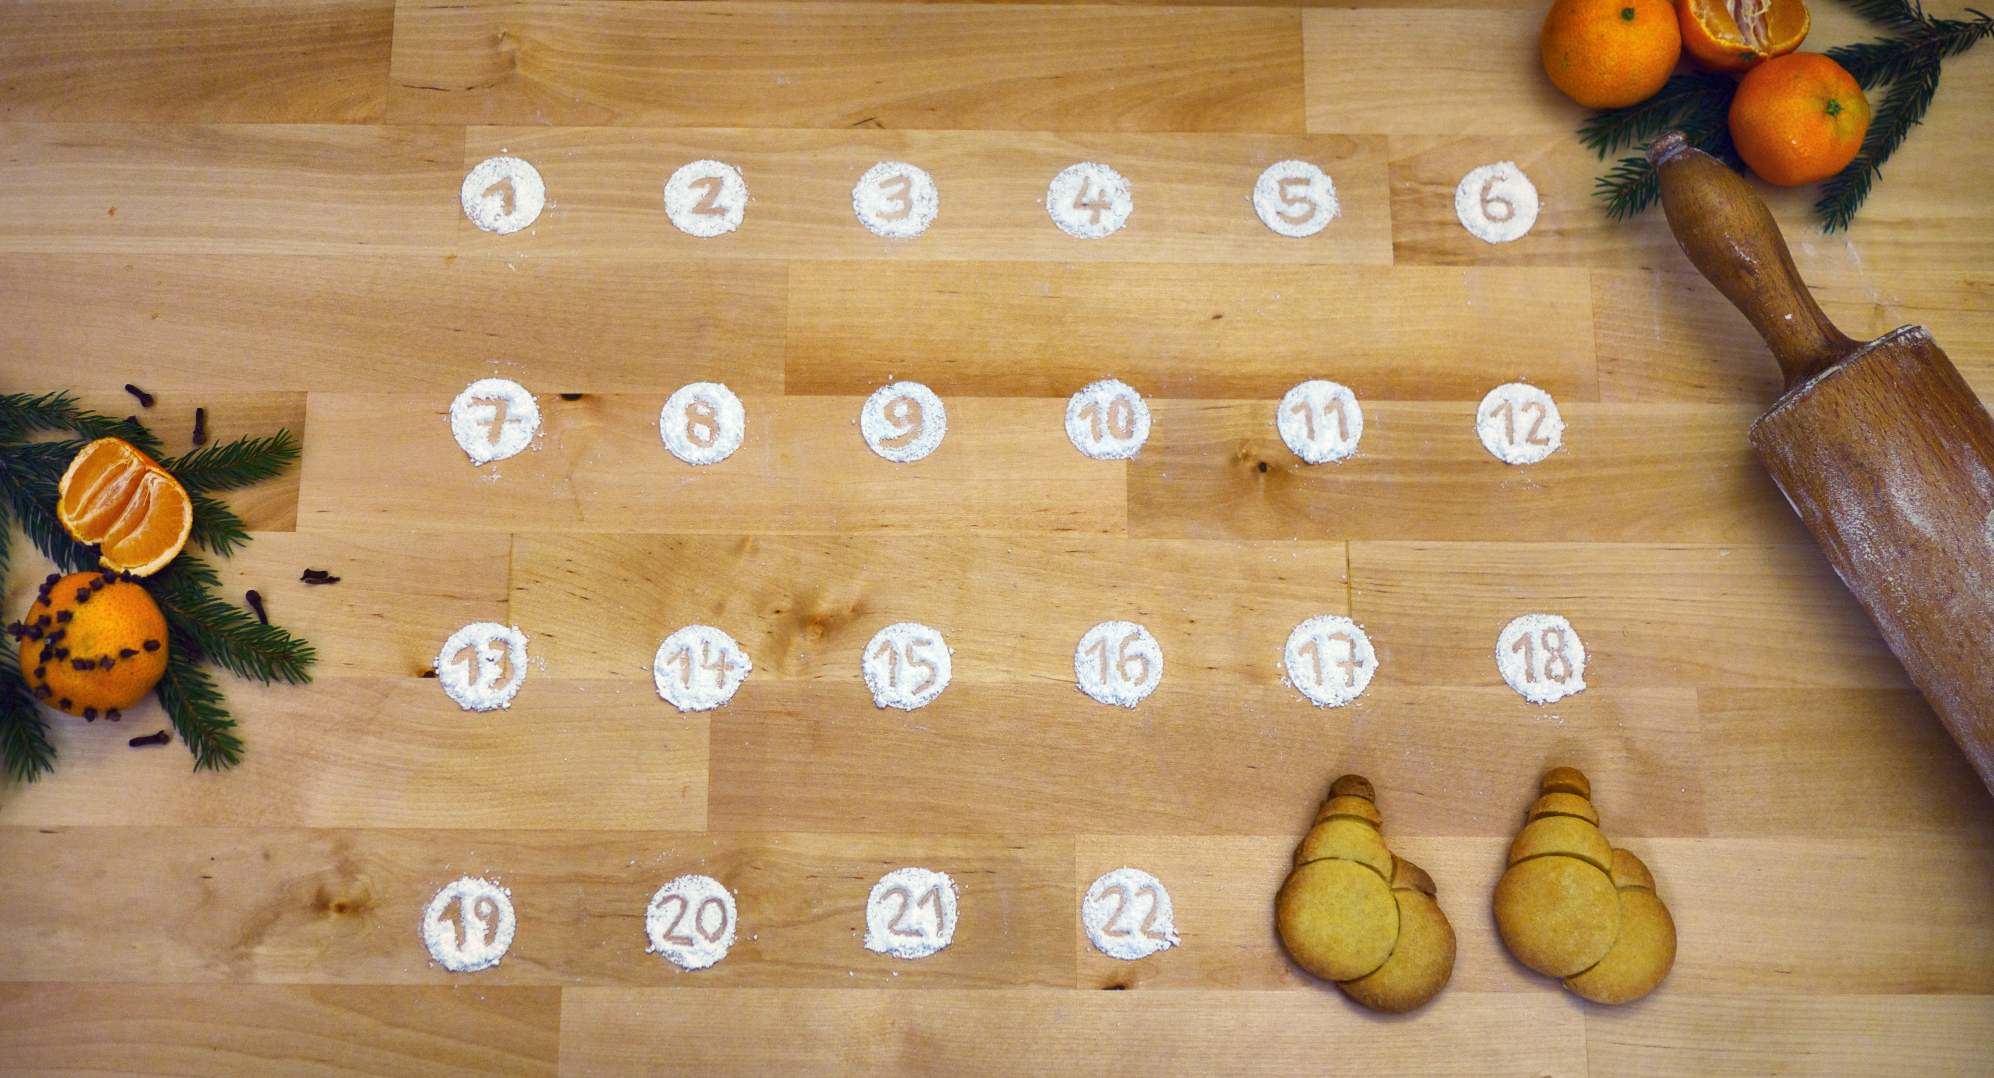 1 2 3 4 5 6
7 8 9 10 11 12
13 14 15 16 17 18
19 20 21 22